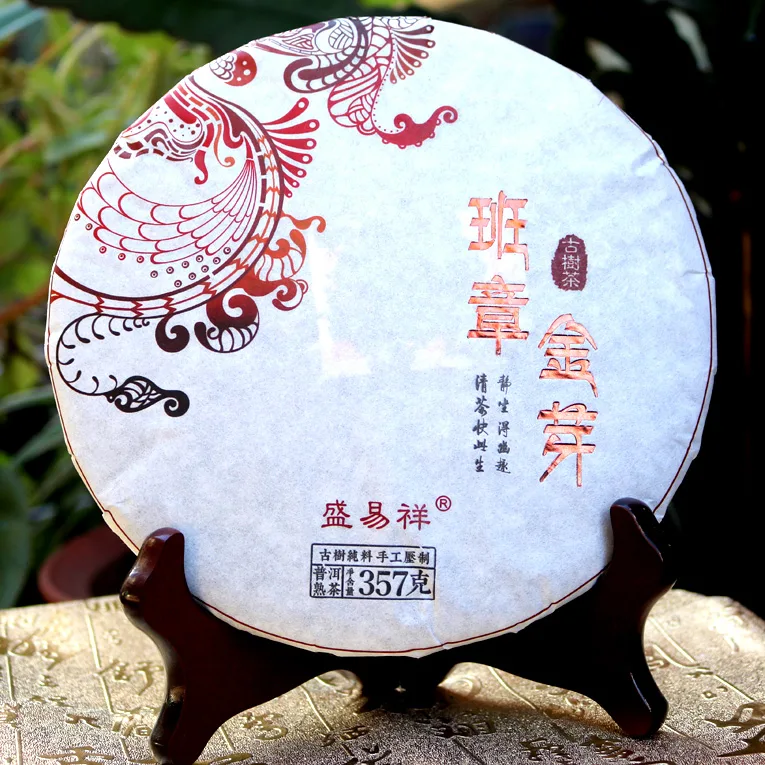 班章
古樹茶
金芽
靜坐得幽趣
清茶快此生
盛易祥®
古樹純料手工壓制
普洱熟茶
淨含量
357克